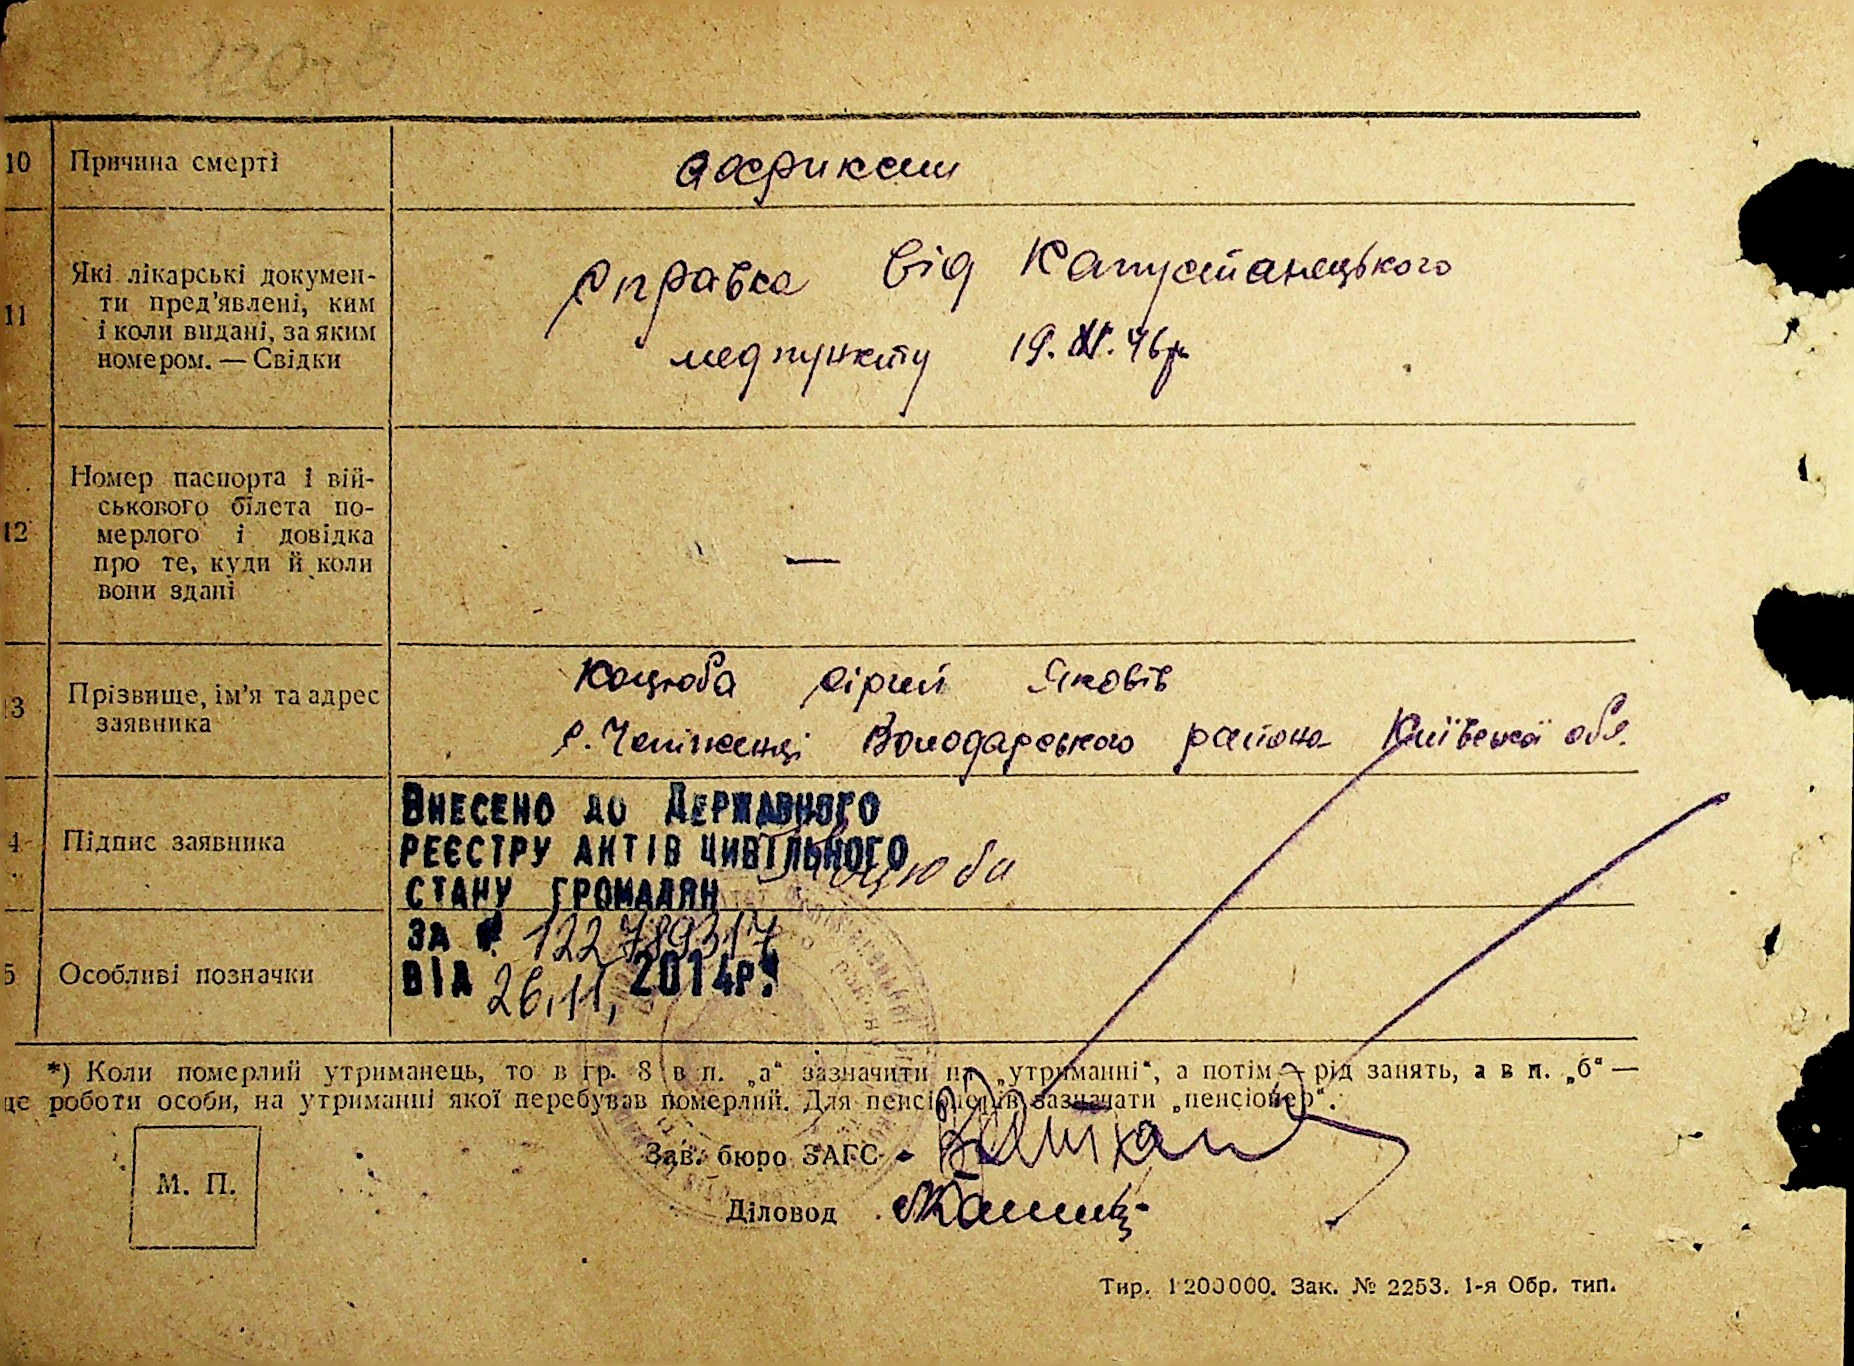 10 Причина смерті асфиксии
11 Які лікарські докумен-
ти пред'явлені, ким
і коли видані, за яким
номером. — Свідки
справка від Капустанецького
медпункту 19. XI. 46р
12 Номер паспорта і вій-
ськового білета по-
мерлого і довідка
про те, куди й коли
вони здані
—
3 Прізвище, ім'я та адрес
заявника
Коцюба Сіргий Яковів
с. Чепіженці Володарського района Київської обл.
4 Підпис заявника
Коцюба
ВНЕСЕНО ДО ДЕРЖАВНОГО
РЕЄСТРУ АКТІВ ЦИВІЛЬНОГО
СТАНУ ГРОМАДЯН
ЗА № 122789317
ВІД 26.11, 2014р.
5 Особливі позначки
*) Коли померлий утриманець, то в гр. 8 в п. „а“ зазначити на „утриманні“, а потім — рід занять, а в п. „б“ —
це роботи особи, на утриманні якої перебував померлий. Для пенсіонерів зазначати „пенсіонер“.
М. П.
Зав. бюро ЗАГС
Діловод
Тир. 1200000. Зак. № 2253. 1-я Обр. тип.